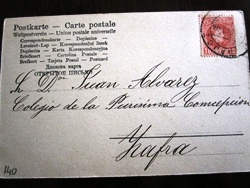 Postkarte - Carte postale
Weltpostverein - Union postale universelle
Correspondenzkarte - Dopisnice
Levelező-Lap - Korespondenční lístek
Dopisnica - Karta Korespondencyjna
Briefkaart - Cartolina postale
Brefkort - Tarjeta Postal - Postcard
ОТКРЫТОЕ ПИСЬМО
S. Dn Juan Alvarez
Colegio de la Purisima Concepcion
Zafra
140